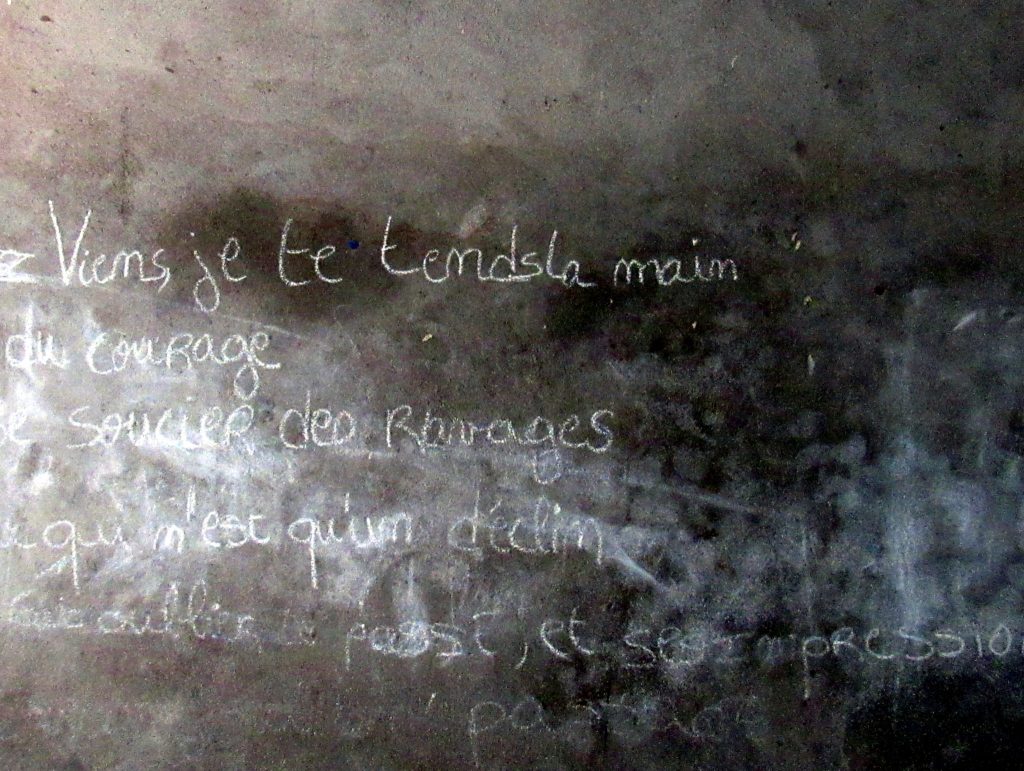 Viens, je te tends la main
du courage
se soucier des Ravages
qui n'est qu'un déclin
oublier le passé, et ses impression